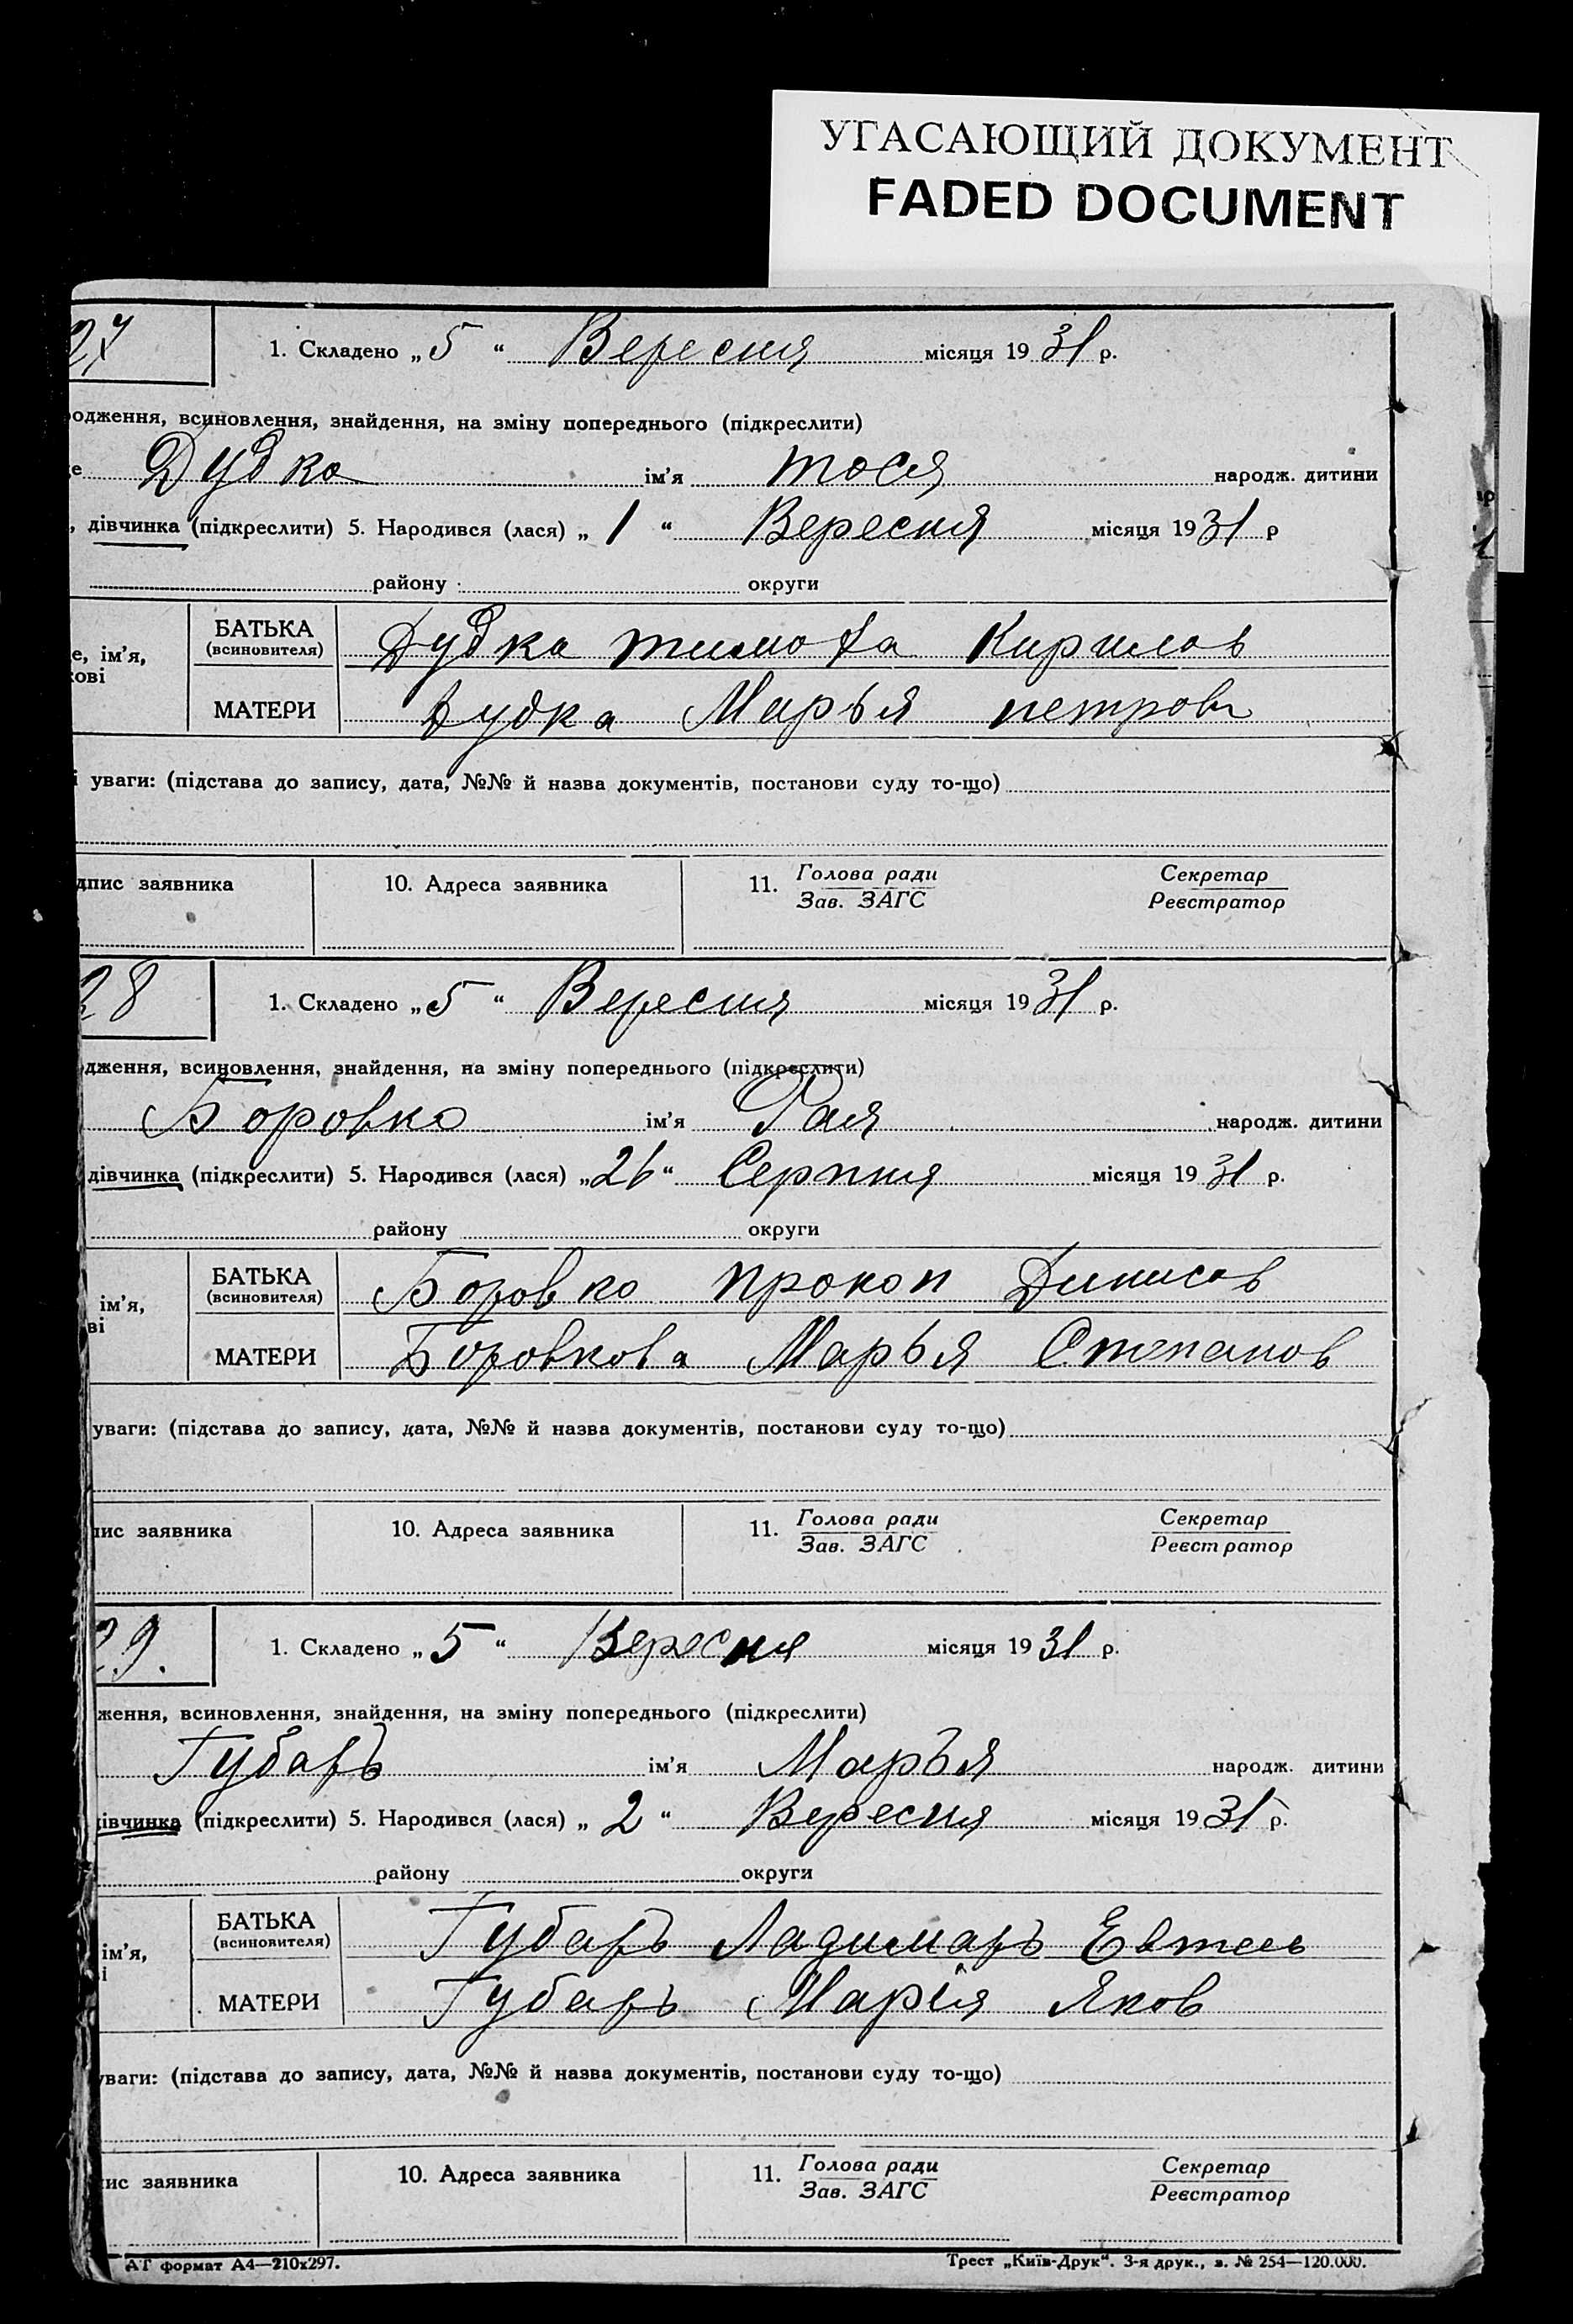 УГАСАЮЩИЙ ДОКУМЕНТ
FADED DOCUMENT
27
1. Складено „ 5 “ Вересня місяця 19 31 р.
одження, всиновлення, знайдення, на зміну попереднього (підкреслити)
е Дудка ім'я тося народж. дитини
, дівчинка (підкреслити) 5. Народився (лася) „ 1 “ Вересня місяця 19 31 р
району округи
е, ім'я,
кові
БАТЬКА
(всиновителя)
Дудка тимоха Кирилов
МАТЕРИ
Дудка Марья петров
і уваги: (підстава до запису, дата, №№ й назва документів, постанови суду то-що)
дпис заявника
10. Адреса заявника
11. Голова ради
Зав. ЗАГС
Секретар
Реєстратор
28
1. Складено „ 5 “ Вересня місяця 19 31 р.
дження, всиновлення, знайдення, на зміну попереднього (підкреслити)
Боровко ім'я Рая народж. дитини
дівчинка (підкреслити) 5. Народився (лася) „ 26 “ Серпня місяця 19 31 р.
району округи
ім'я,
ві
БАТЬКА
(всиновителя)
Боровко прокоп Динисов
МАТЕРИ
Боровкова Марья Степанов
уваги: (підстава до запису, дата, №№ й назва документів, постанови суду то-що)
пис заявника
10. Адреса заявника
11. Голова ради
Зав. ЗАГС
Секретар
Реєстратор
29.
1. Складено „ 5 “ Вересня місяця 19 31 р.
ження, всиновлення, знайдення, на зміну попереднього (підкреслити)
Губарь ім'я Марья народж. дитини
дівчинка (підкреслити) 5. Народився (лася) „ 2 “ Вересня місяця 19 31 р.
району округи
ім'я,
і
БАТЬКА
(всиновителя)
Губарь Ладимарь Евтеев
МАТЕРИ
Губарь Марія Яков
уваги: (підстава до запису, дата, №№ й назва документів, постанови суду то-що)
пис заявника
10. Адреса заявника
11. Голова ради
Зав. ЗАГС
Секретар
Реєстратор
АТ формат А4—210х297.
Трест „Київ-Друк“. 3-я друк., з. № 254—120.000.